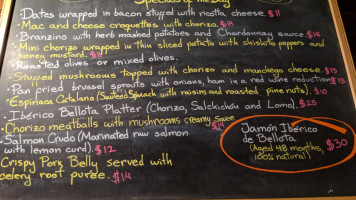 Specials of the Day
- Dates wrapped in bacon stuffed with ricotta cheese $11
- Mac and cheese croquettes with chorizo $14
- Branzino with herb mashed potatoes and Chardonnay sauce $16
- Mini chorizo wrapped in thin sliced potato with shishito peppers and
honey mustard
Roasted olives or mixed olives.
- Stuffed mushrooms topped with chorizo and manchego cheese $13
- Pan fried brussel sprouts with onions, ham in a red wine reduction $13
- Espinaca Catalana (Sauteed Spinach with raisins and roasted pine nuts). $10
- Ibérico Bellota Platter (Chorizo, Salchichón and Lomo). $25
- Chorizo meatballs with mushrooms creamy Sauce $14
- Salmon Crudo (Marinated raw salmon
with lemon curd). $12
Crispy Pork Belly served with
celery root purée. $14
Jamón Ibérico
de Bellota
(Aged 48 months,
100% natural) $30